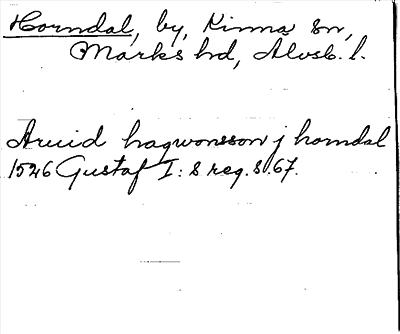 Horndal, by, Kinna sn,
Marks hd, Älvsb. l.
Aruid hagwonsson j horndal
1526 Gustaf I: s reg. s. 67.